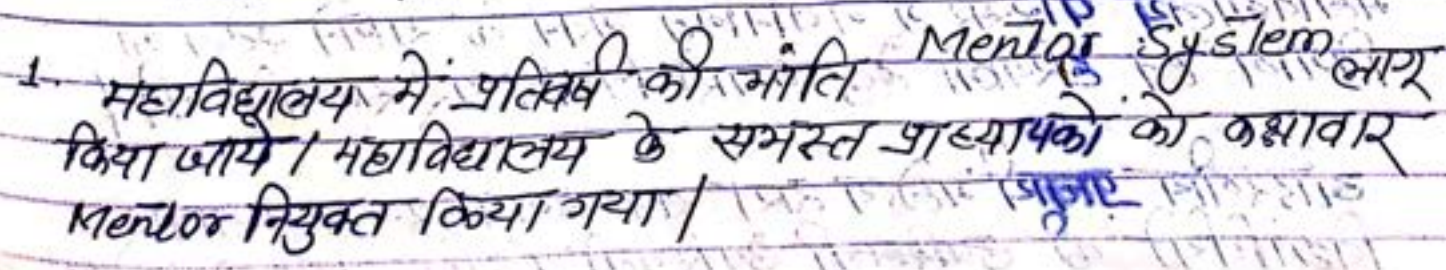 1. महाविद्यालय में प्रतिवर्ष की भांति Mentor System लागू
किया जाये। महाविद्यालय के समस्त प्राध्यापकों को कक्षावार
Mentor नियुक्त किया गया।